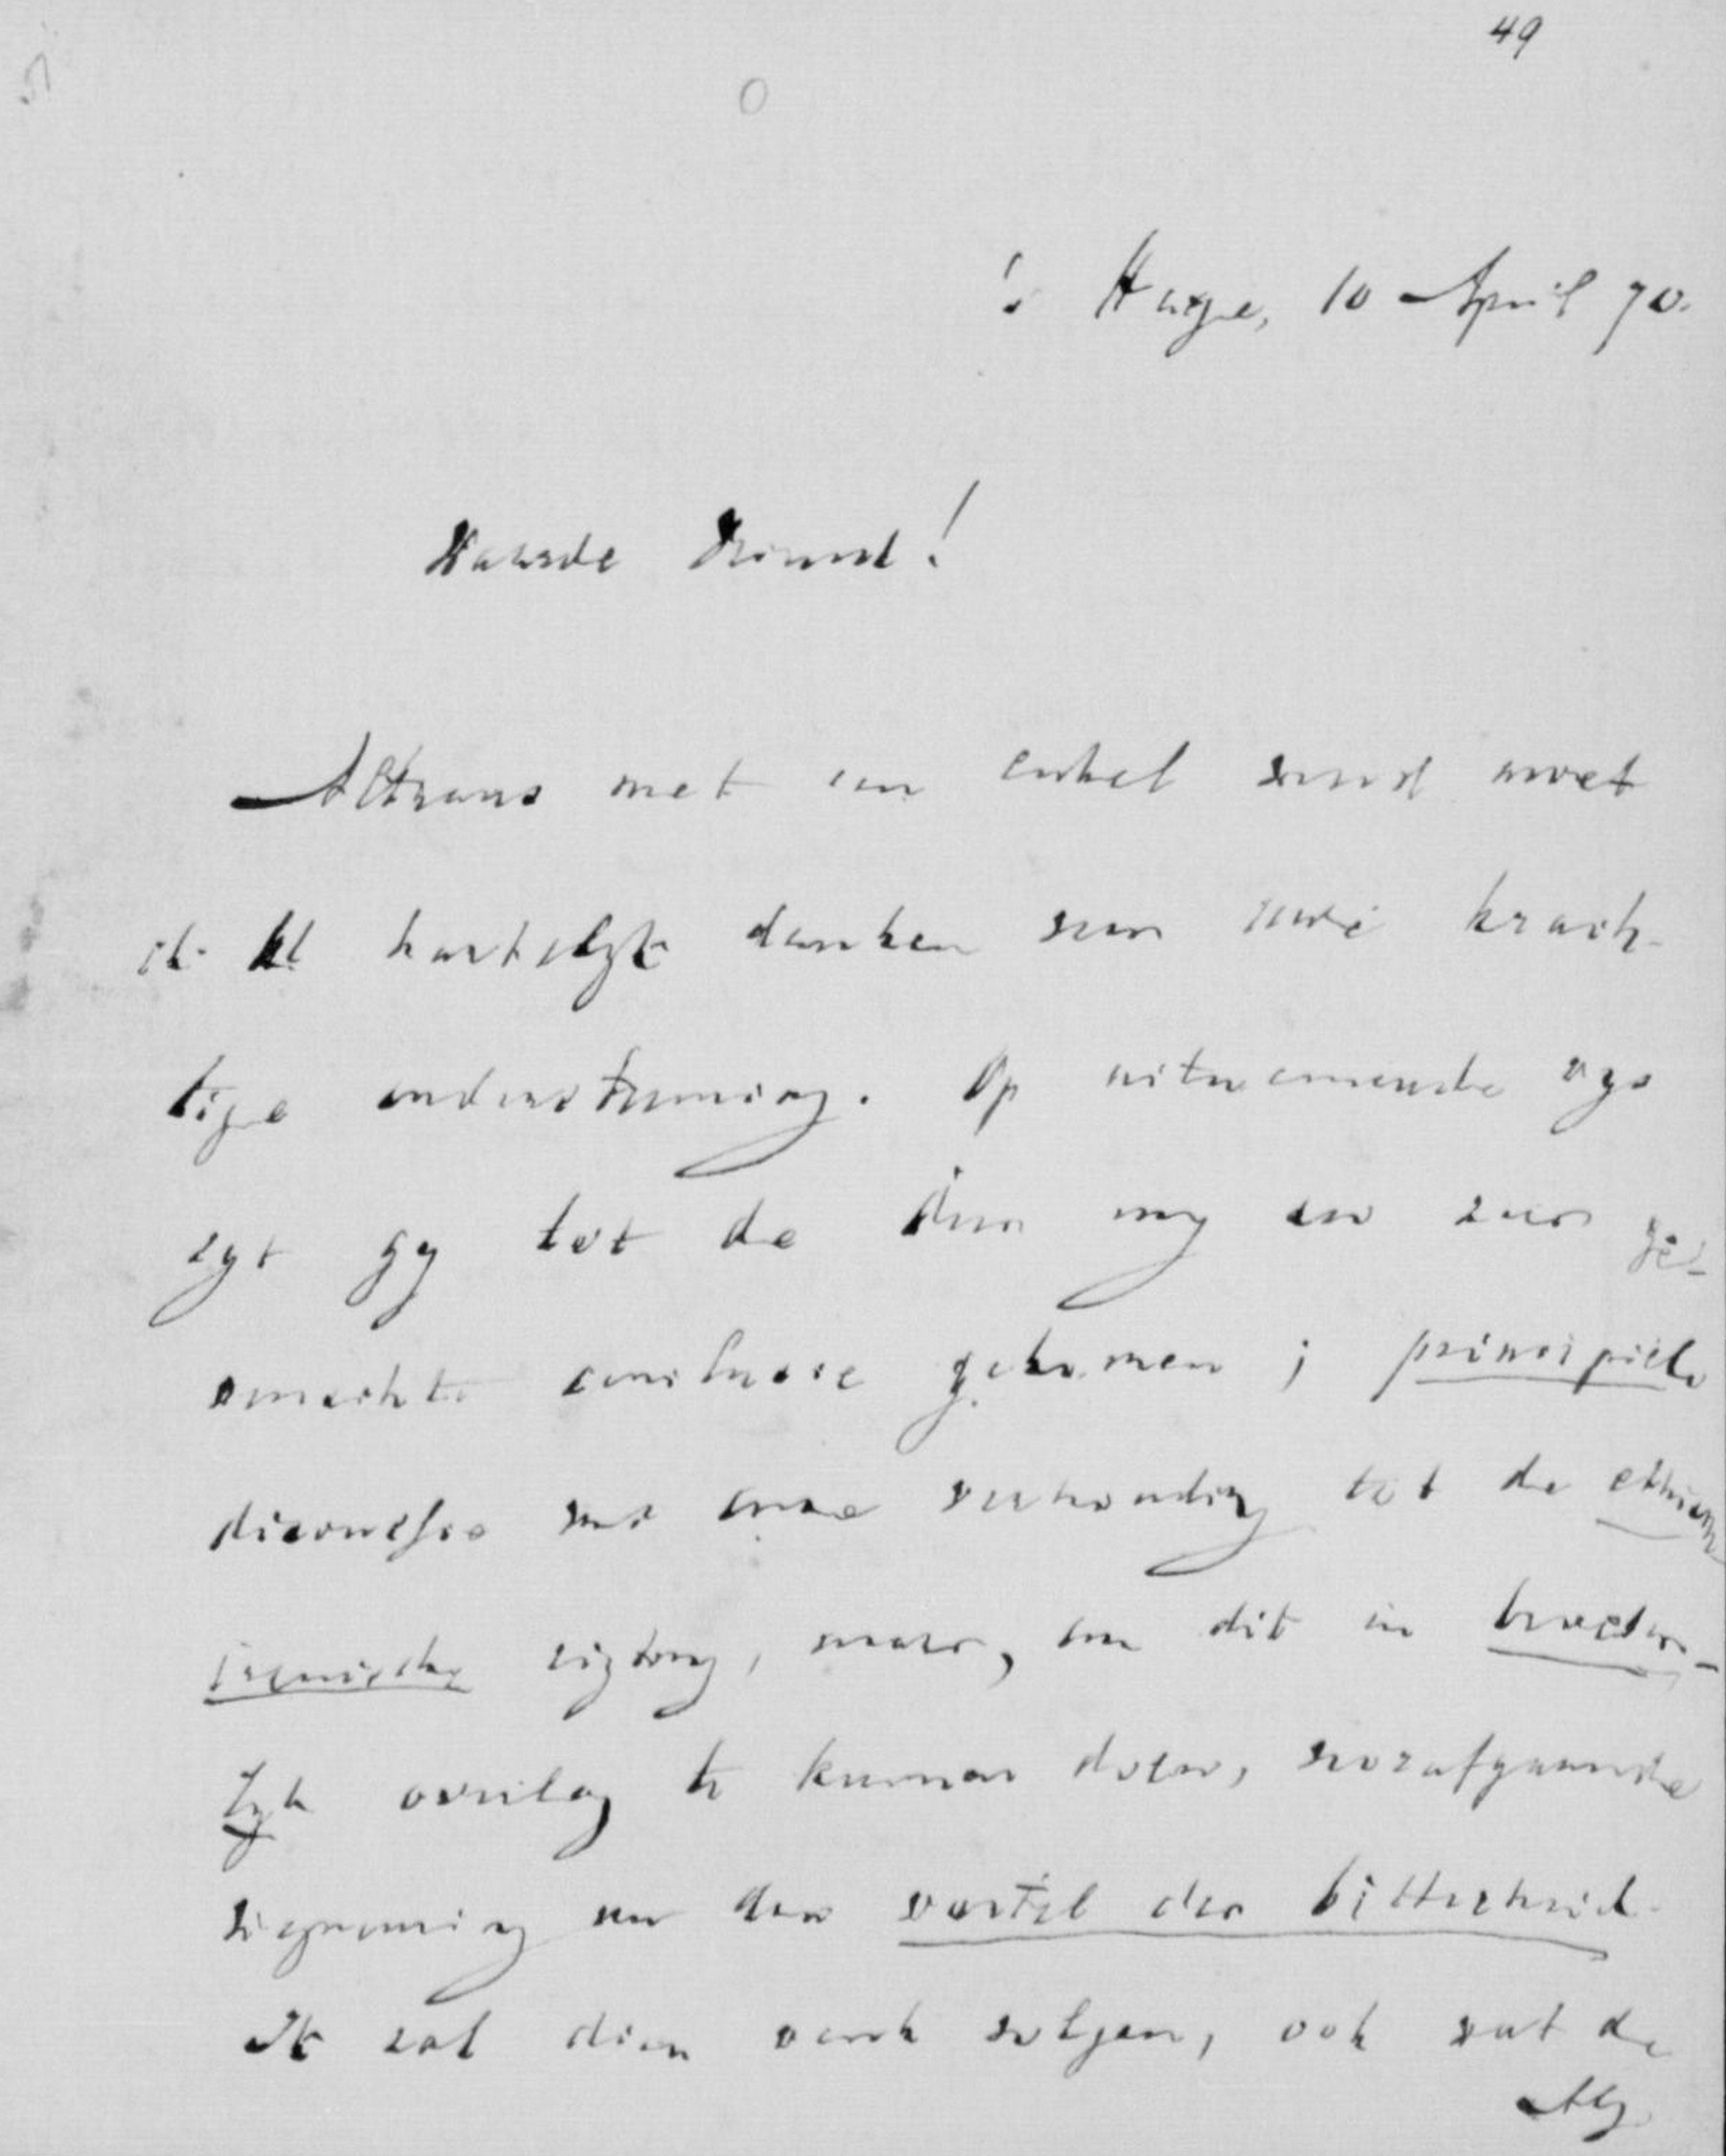 49
's Hage, 10 April 70.
Waarde Vriend!
Althans met een enkel woord moet
ik U hartelijk danken voor uwe krach-
tige ondersteuning. Op uitnemende wys
zyt gy tot de door my zeer ge-
wenschte conclusie gekomen; principiele
discussie over onze verhouding tot de ethisch
irenische rigting, maar, om dit in broeder-
lyk overleg te kunnen doen, voorafgaande
wegneming van den wortel der bitterheid.
Ik zal dien wenk volgen, ook wat de
Alg.